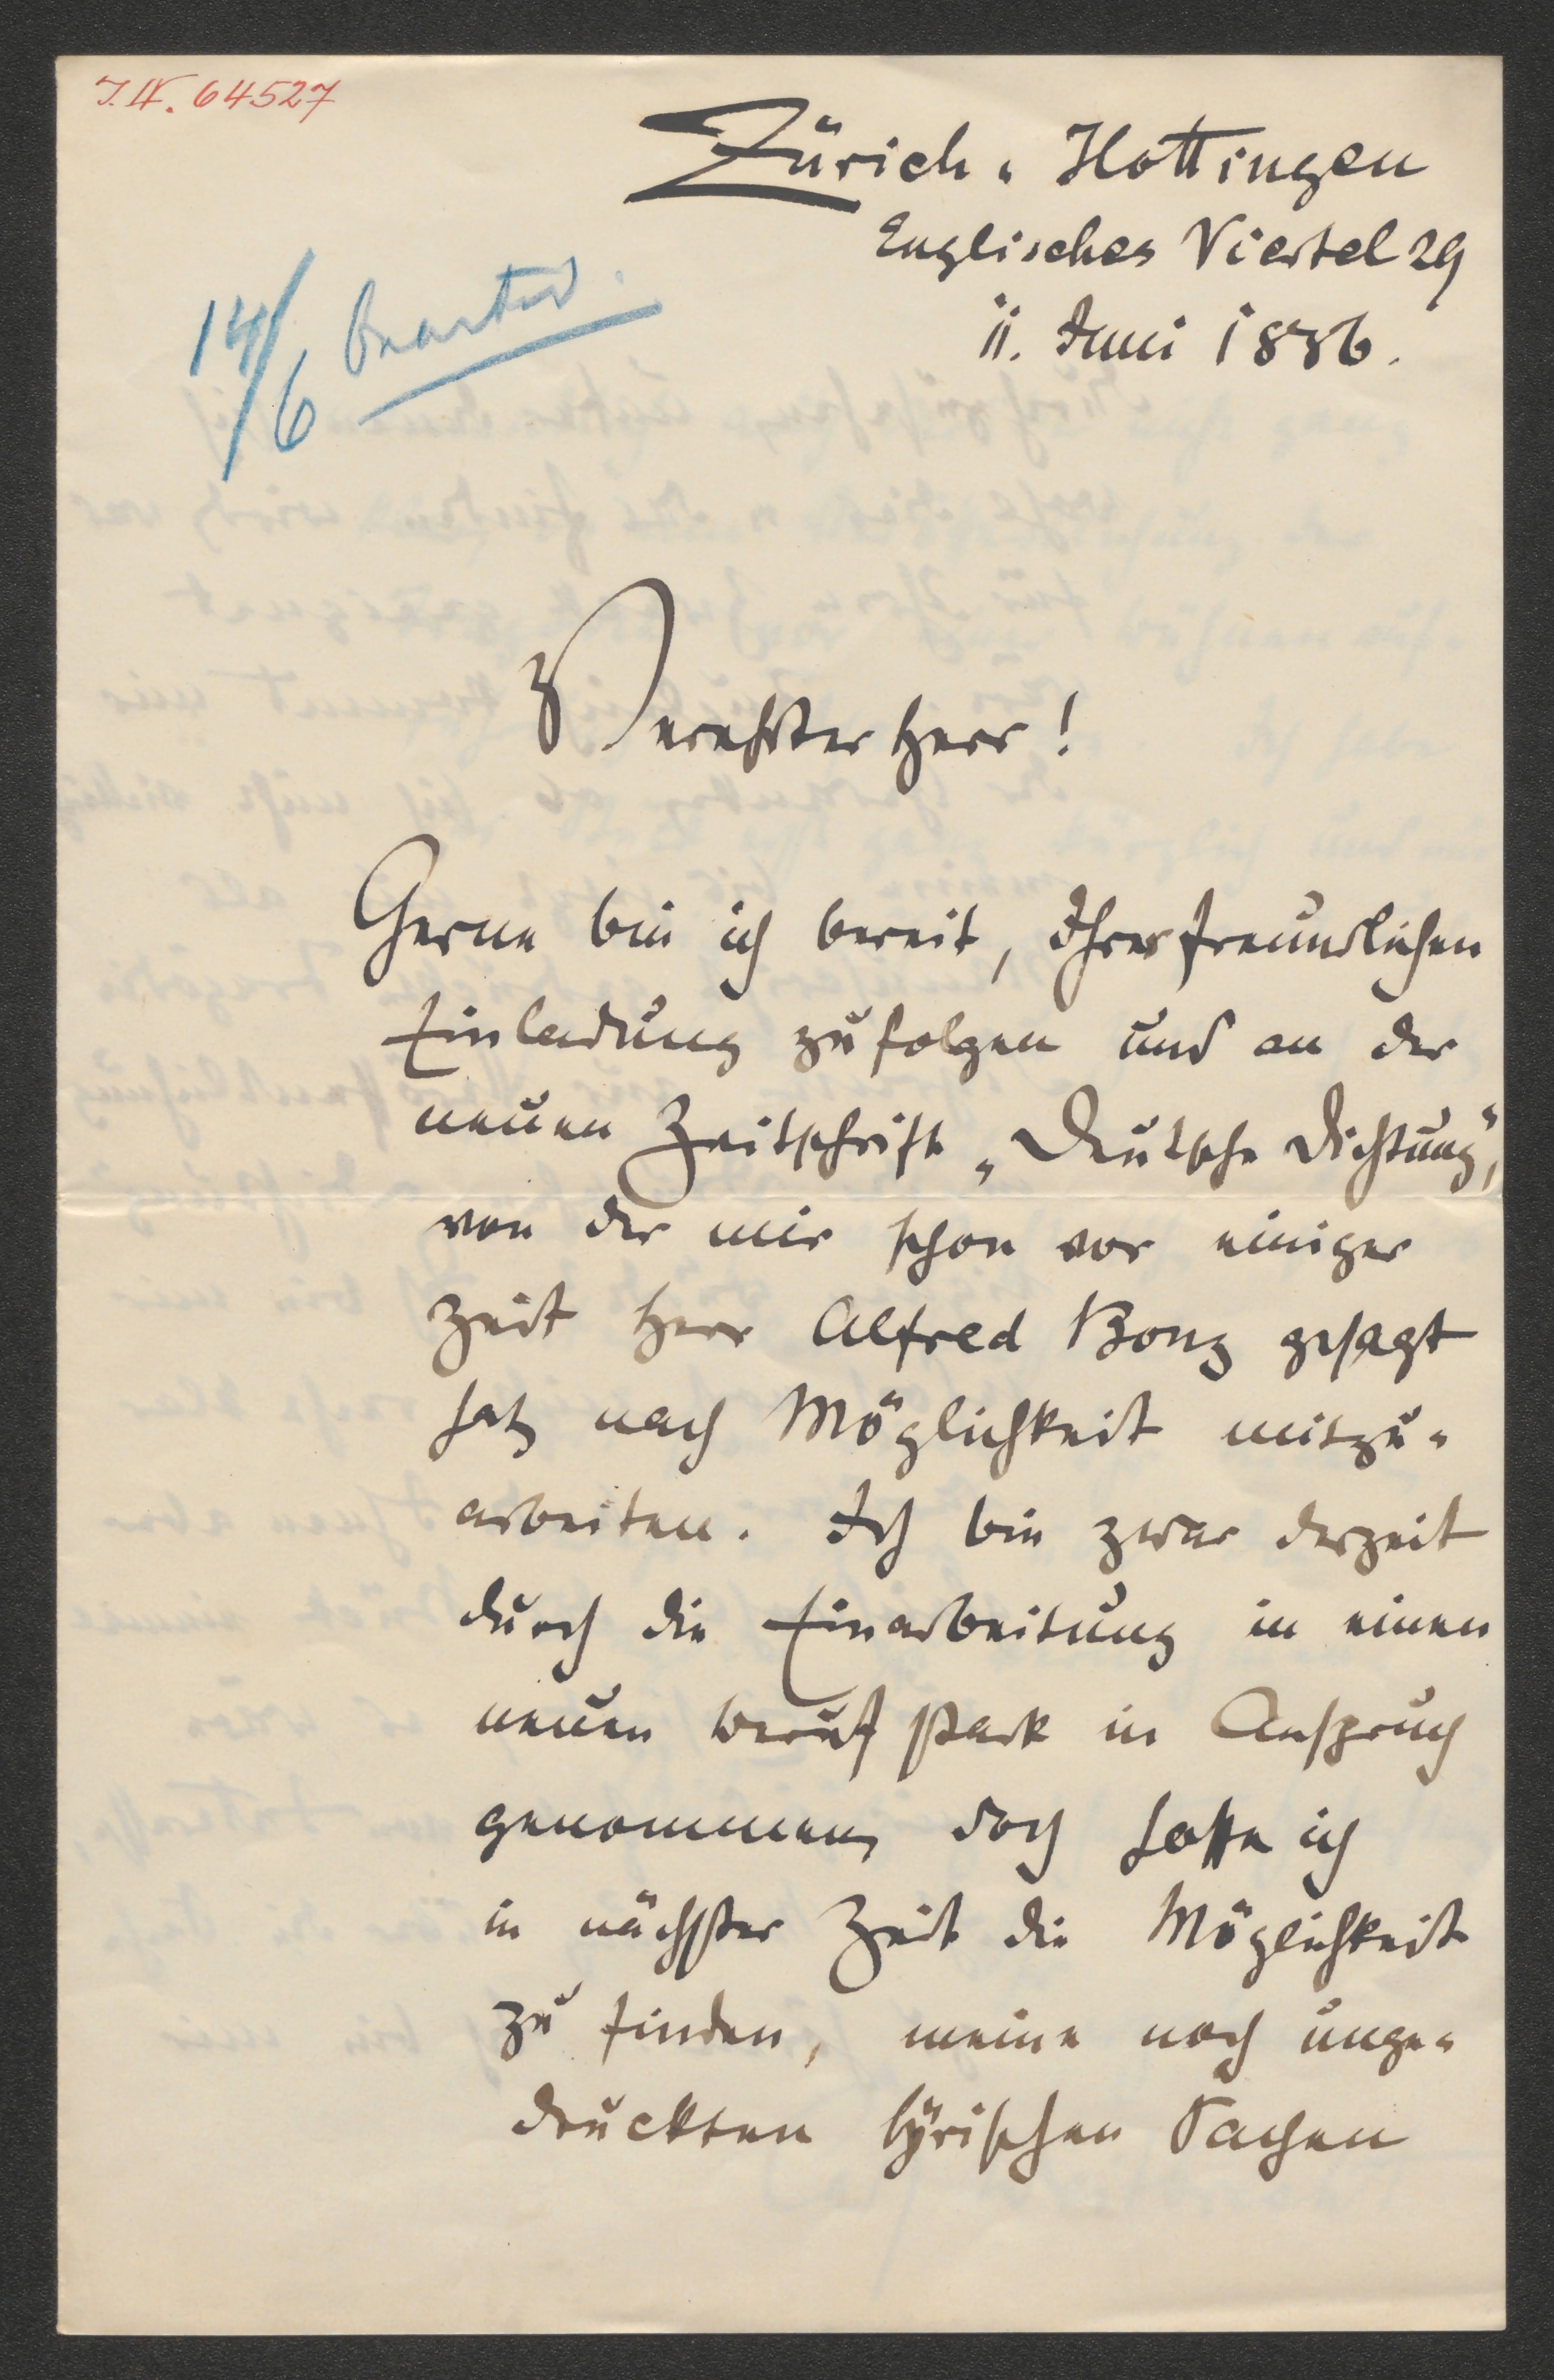 I.N. 64527
Zürich-Hottingen
Englisches Viertel 29
11. Juni 1886.
14/6 beantw.
Verehrter Herr!
Gerne bin ich bereit, Ihrer freundlichen
Einladung zu folgen und an der
neuen Zeitschrift „Deutsche Dichtung",
von der mir schon vor einiger
Zeit Herr Alfred Bonz gesagt
hat, nach Möglichkeit mitzu-
arbeiten. Ich bin zwar derzeit
durch die Einarbeitung in einen
neuen Beruf stark in Anspruch
genommen, doch hoffe ich
in nächster Zeit die Möglichkeit
zu finden, meine noch unge-
druckten lyrischen Sachen